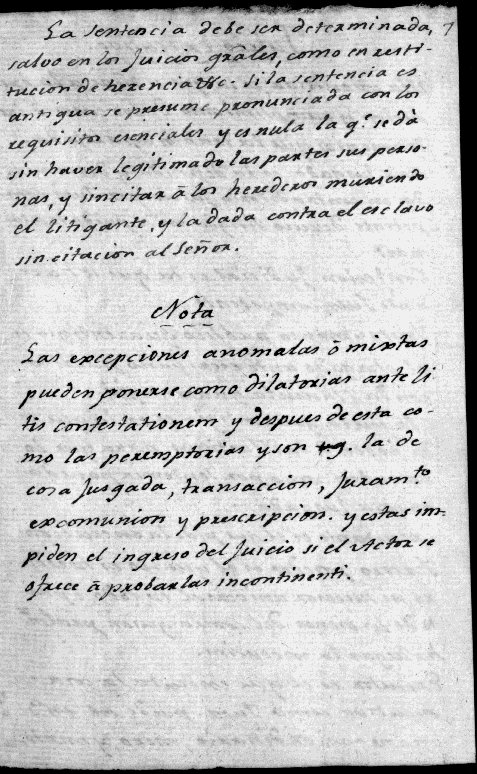 La sentencia debe ser determinada, 7
salvo en los Juicios grâles, como en resti-
tucion de herencia &c. Si la sentencia es
antigua se presume pronunciada con los
requisitos esenciales y es nula la q.e se dà
sin haver legitimado las partes sus perso-
nas, y sin citar â los herederos muriendo
el litigante, y la dada contra el esclavo
sin citacion al Señor.
Nota
Las excepciones anomalas ô mixtas
pueden ponerse como dilatorias ante li
tis contestationem y despues de esta co-
mo las peremptorias y son v.g. la de
cosa Jusgada, transaccion, Juram.to
excomunion y prescripcion. y estas im-
piden el ingreso del Juicio si el Actor se
ofrece â probarlas incontinenti.